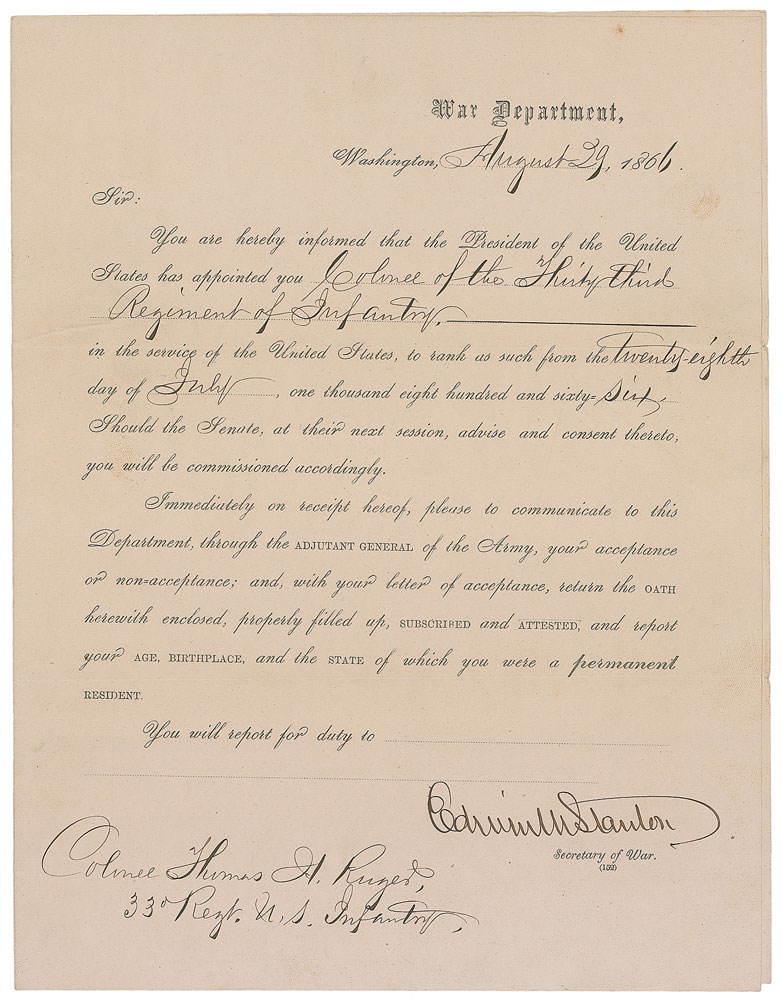 War Department,
Washington, August 29, 1866.
Sir:
You are hereby informed that the President of the United
States has appointed you Colonel of the Thirty third
Regiment of Infantry,
in the service of the United States, to rank as such from the twenty-eighth
day of July, one thousand eight hundred and sixty=six.
Should the Senate, at their next session, advise and consent thereto,
you will be commissioned accordingly.
Immediately on receipt hereof, please to communicate to this
Department, through the ADJUTANT GENERAL of the Army, your acceptance
or non=acceptance; and, with your letter of acceptance, return the OATH
herewith enclosed, properly filled up, SUBSCRIBED and ATTESTED, and report
your AGE, BIRTHPLACE, and the STATE of which you were a permanent
RESIDENT.
You will report for duty to
Edwin M Stanton
Secretary of War.
(152)
Colonel Thomas H. Ruger,
33d Regt. U.S. Infantry,